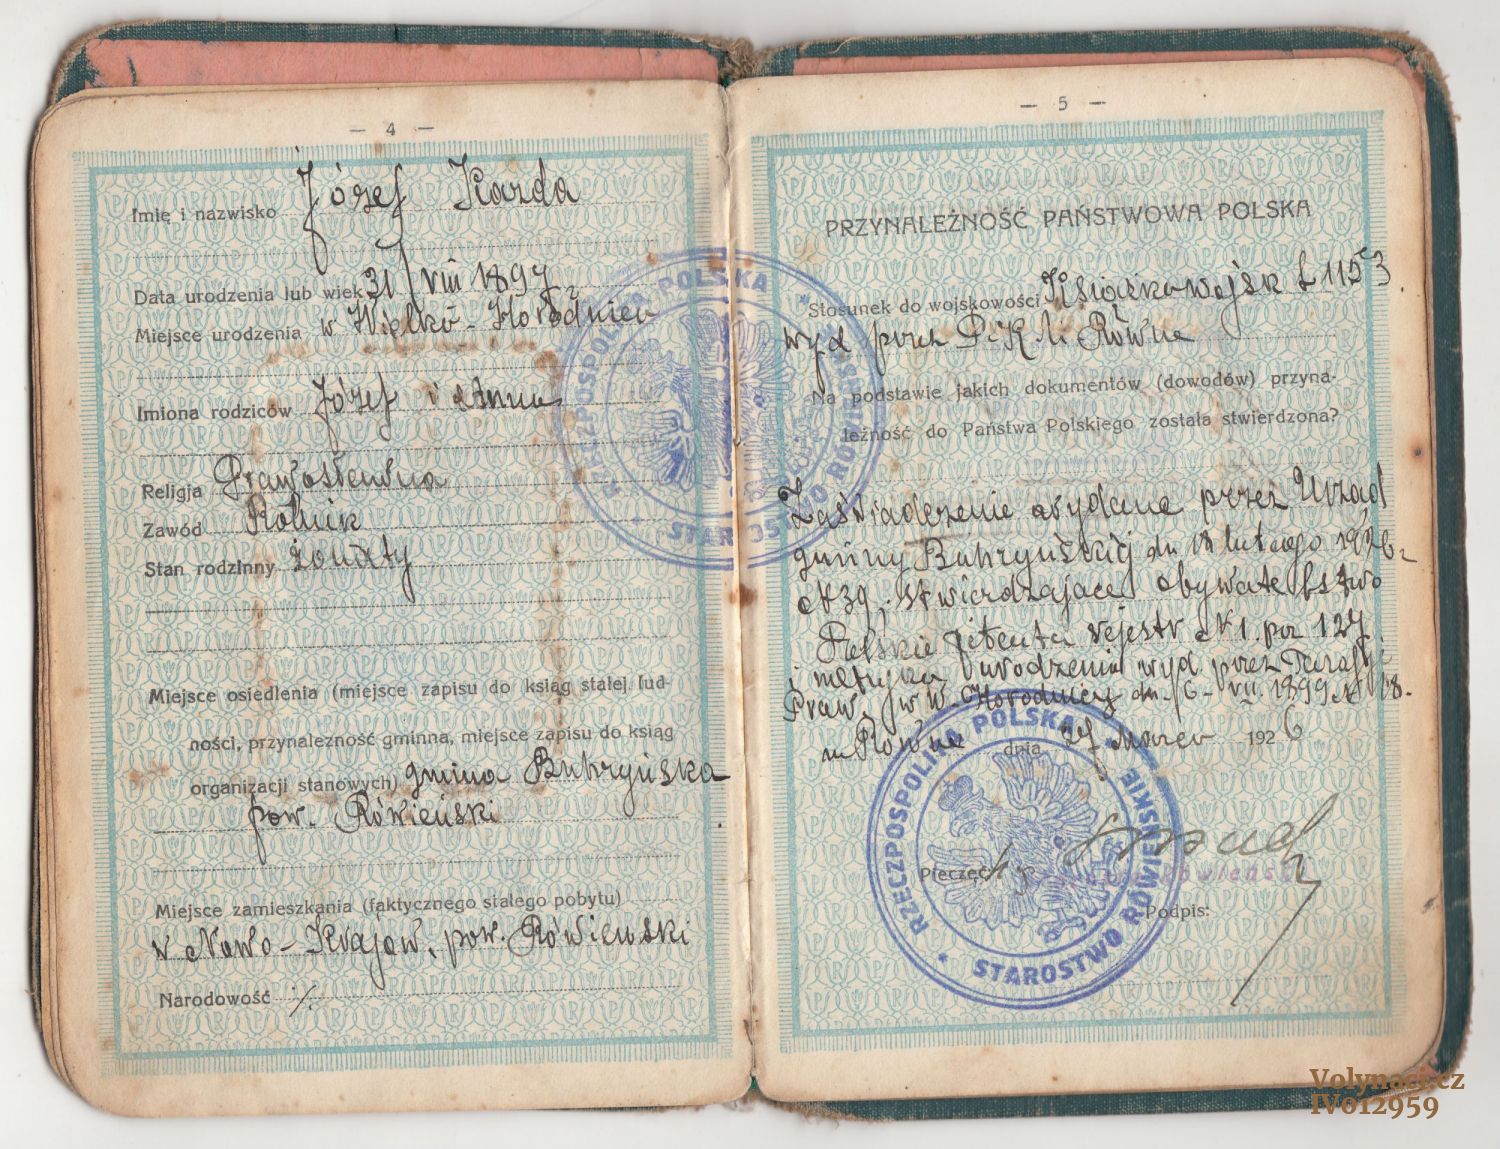 — 4 —
Imię i nazwisko Józef Kazda
Data urodzenia lub wiek 31/VIII 1897
Miejsce urodzenia w Wielko-Horodnicy
Imiona rodziców Józef i Anna
Religja Prawosławna
Zawód Rolnik
Stan rodzinny żonaty
Miejsce osiedlenia (miejsce zapisu do ksiąg stałej lud-
ności, przynależność gminna, miejsce zapisu do ksiąg
organizacji stanowych) gmina Buhryńska
pow. Rówieński
Miejsce zamieszkania (faktycznego stałego pobytu)
w Nowo-Krajow, pow. Rówieński
Narodowość
— 5 —
PRZYNALEŻNOŚĆ PAŃSTWOWA POLSKA
Stosunek do wojskowości Książka wojsk L 1153
wyd przez P.K.U. Równe
Na podstawie jakich dokumentów (dowodów) przyna-
leżność do Państwa Polskiego została stwierdzona?
Zaświadczenie wydane przez Urząd
gminy Buhryńskiej dn lutego 1926
stwierdzające obywatelstwo
Polskie petenta rejestr № 1. poz 127
i metryka urodzenia wyd przez
Praw. w W. Horodnicy dn. VII. 1899 18.
m Równe dnia Marca 1926
Pieczęć
Podpis:
RZECZPOSPOLITA POLSKA
STAROSTWO RÓWIEŃSKIE
RZECZPOSPOLITA POLSKA
STAROSTWO RÓWIEŃSKIE
Volynaci.cz
IV012959